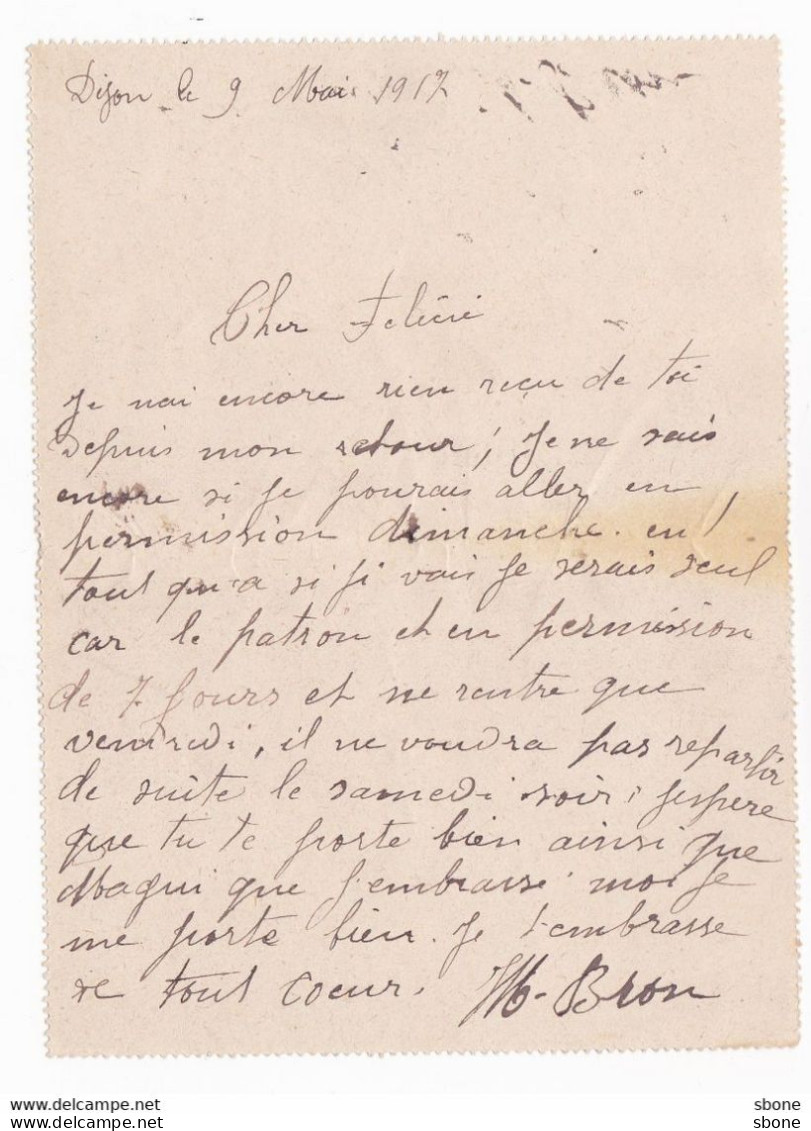 Dijon le 9 Mai 1917
Cher Felicie
Je nai encore rien reçu de toi
depuis mon retour ; Je ne sais
encore si je pourais aller en
permission dimanche. en
tout qu'a si ji vais je serais seul
car le patron et en permission
de 7 jours et ne rentre que
vendredi, il ne voudra pas repartir
de suite le samedi soir, jespere
que tu te porte bien ainsi que
Magui que j'embrasse moi je
me porte bien. Je t'embrasse
de tout coeur. M. Bron
sbone
sbone
www.delcampe.net
www.delcampe.net
sbone
sbone